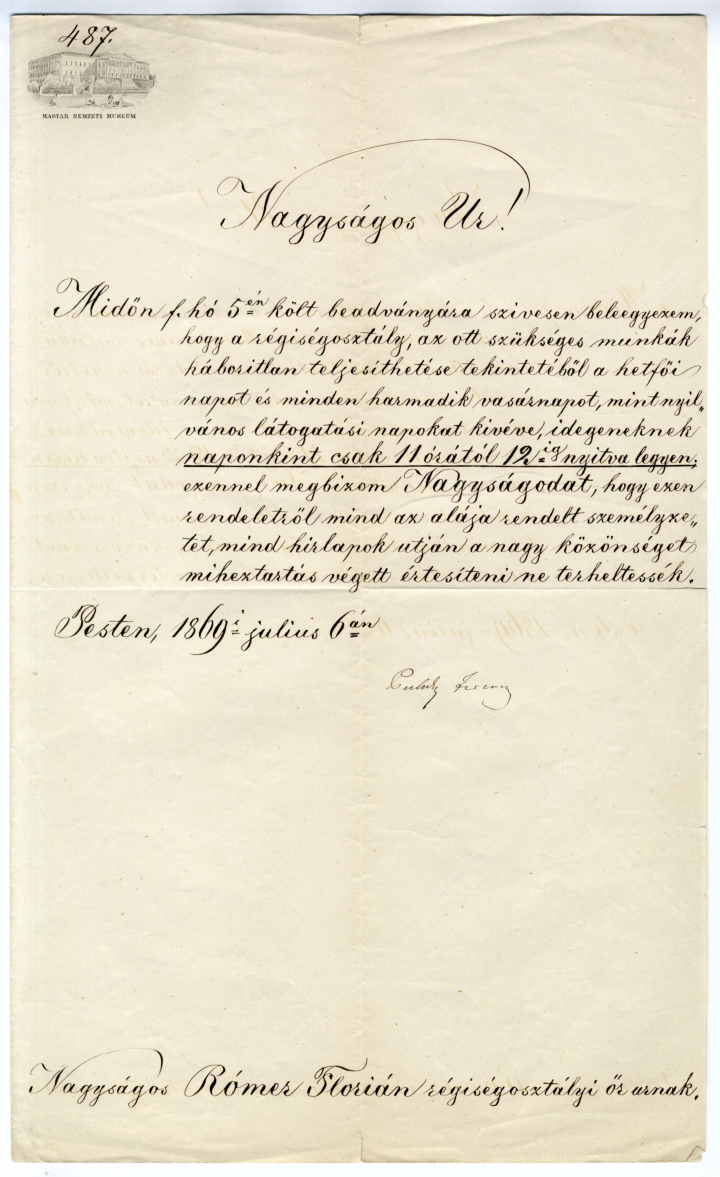 487.
MAGYAR NEMZETI MUZEUM
Nagyságos Ur!
Midőn f. hó 5én költ beadványára szivesen beleegyezem,
hogy a régiségosztály, az ott szükséges munkák
háboritlan teljesíthetése tekintetéből a hetfői
napot és minden harmadik vasárnapot, mint nyil„
vános látogatási napokat kivéve, idegeneknek
naponkint csak 11 órától 12ig nyitva legyen;
ezennel megbizom Nagyságodat, hogy ezen
rendeletről mind az alája rendelt személyze„
tet, mind hirlapok utján a nagy közönséget
miheztartás végett értesíteni ne terheltessék.
Pesten, 1869i julius 6án
Pulszky Ferencz
Nagyságos Rómer Florián régiségosztályi őr urnak.